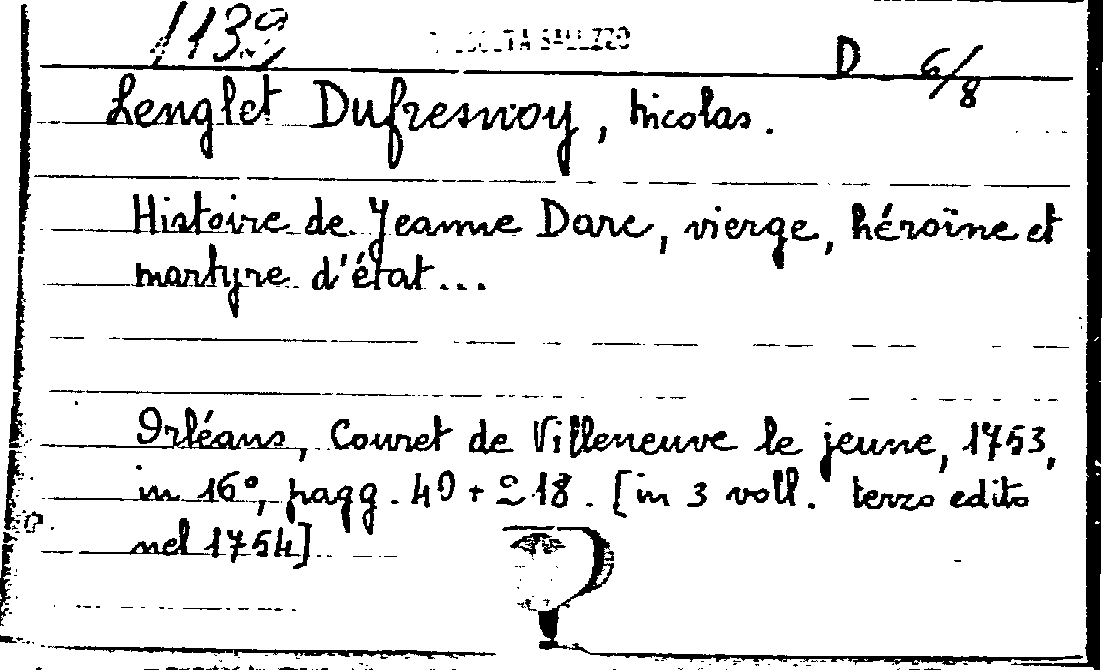 1139
D 6/8
Lenglet Dufresnoy, Nicolas.
Histoire de Jeanne Darc, vierge, héroïne et
martyre d'état...
Orléans, Couret de Villeneuve le jeune, 1753,
in 16°, pagg. 40 + 218. [in 3 voll. terzo edito
nel 1754]